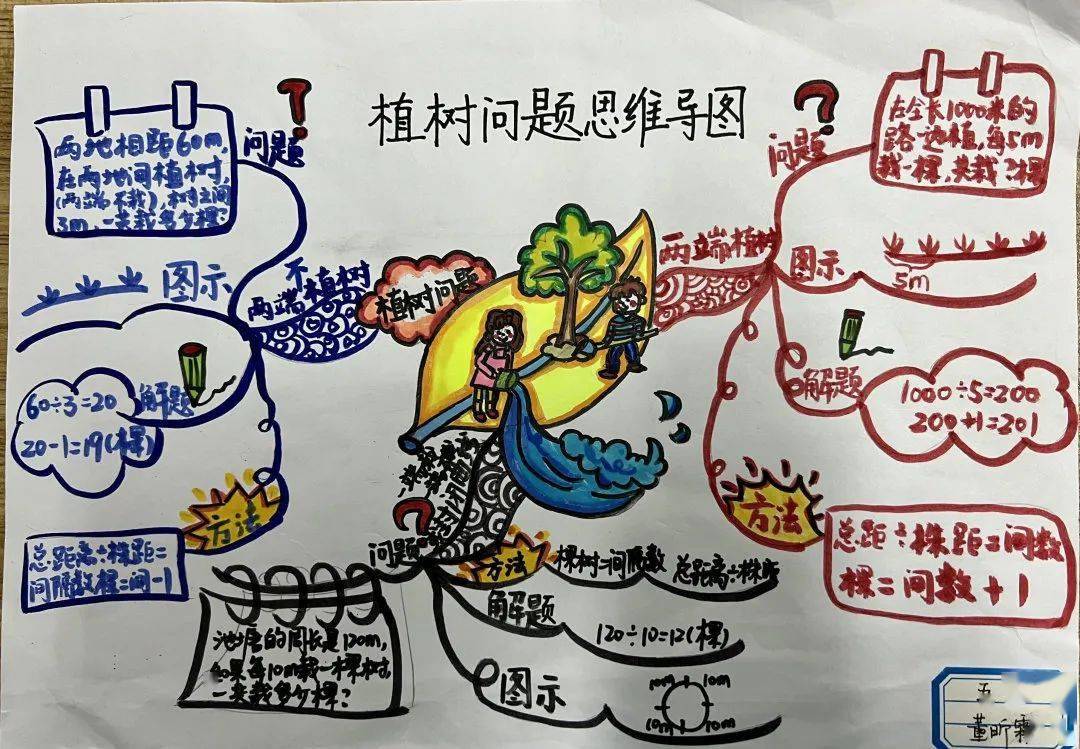 植树问题思维导图
植树问题
不
两端植树
问题
两地相距60m,
在两地间植树,
(两端不栽),树之间
3m,一共栽多少棵?
图示
解题
60÷3=20
20-1=19(棵)
方法
总距离÷株距=
间隔数棵=间-1
两端植树
问题
在全长1000米的
路一边植,每5m
栽一棵,共栽?棵
图示
5m
解题
1000÷5=200
200+1=201
方法
总距÷株距=间数
棵=间数+1
问题
池塘的周长是120m,
如果每10m栽一棵树,
一共栽多少棵?
方法
棵树=间隔数
总距离÷株距
解题
120÷10=12(棵)
图示
10m 10m
10m 10m
五
董昕